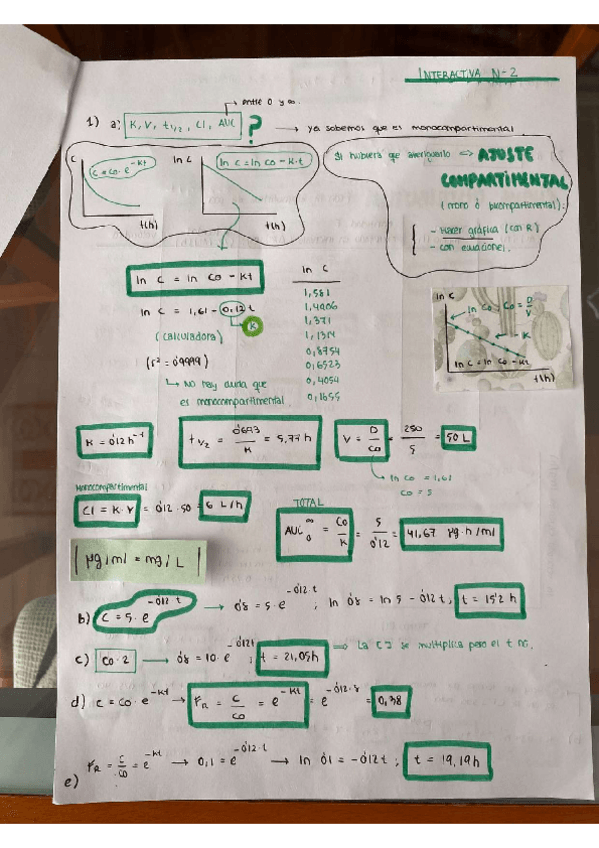 INTERACTIVA N-2
entre 0 y ∞.
1) a: K, V, t1/2, Cl, AUC ? → ya sabemos que es monocompartimental
C
C = C0 · e^-Kt
t(h)
ln C
ln C = ln C0 - K·t
t(h)
Si hubiera que averiguarlo ⇒ AJUSTE
COMPARTIMENTAL
(mono ó bicompartimental):
- Hacer gráfica (con R)
- con ecuaciones.
ln C = ln C0 - Kt
ln C = 1,61 - 0,12 t
K
(calculadora)
(r² = 0'9999)
↳ NO hay duda que
es monocompartimental
ln C
1,581
1,371
0,8754
0,6523
0,4054
0,1655
ln C
ln C0 → C0 = D/V
K
ln C = ln C0 - Kt
t(h)
K = 0'12 h⁻¹
t1/2 = 0'693/K = 5,77 h
V = D/C0 = 250/5 = 50 L
↳ ln C0 = 1,61
C0 = 5
Monocompartimental
Cl = K·V = 0'12 · 50 = 6 L/h
TOTAL
AUC0^∞ = C0/K = 5/0'12 = 41,67 µg·h/ml
| µg/ml = mg/L |
b) C = 5·e^-0'12 t → 0'8 = 5·e^-0'12·t ; ln 0'8 = ln 5 - 0'12 t, t = 15'2 h
c) C0·2 → 0'8 = 10·e^-0'12t ; t = 21,05h ⇒ La C sí se multiplica pero el t no.
d) C = C0·e^-Kt → FR = C/C0 = e^-Kt = e^-0'12·8 = 0,38
e) FR = C/C0 = e^-Kt → 0,1 = e^-0'12·t → ln 0'1 = -0'12t ; t = 19,19h